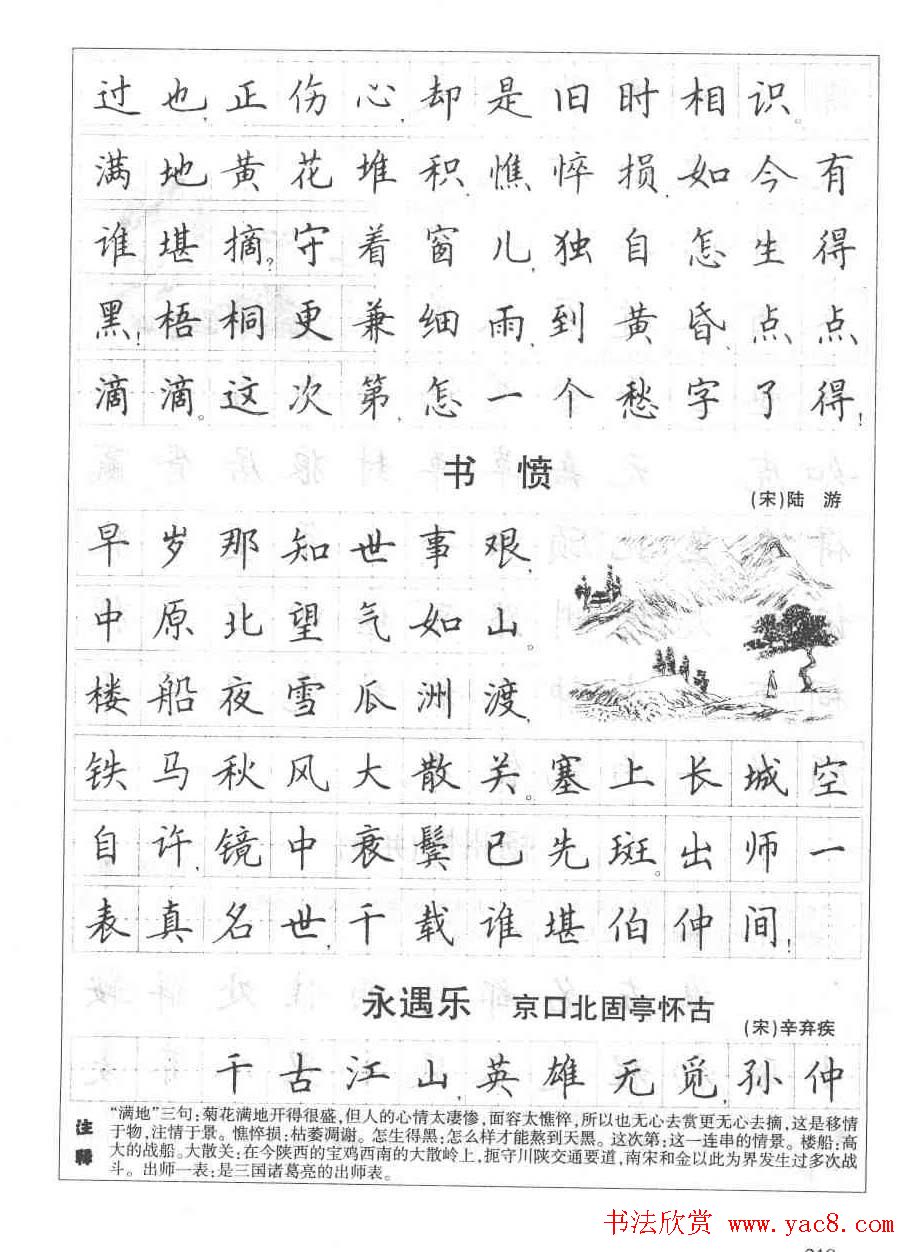 过也,正伤心,却是旧时相识。
满地黄花堆积,憔悴损,如今有
谁堪摘?守着窗儿,独自怎生得
黑!梧桐更兼细雨,到黄昏,点点
滴滴。这次第,怎一个愁字了得!
书 愤
(宋)陆 游
早岁那知世事艰,
中原北望气如山。
楼船夜雪瓜洲渡,
铁马秋风大散关。塞上长城空
自许,镜中衰鬓已先斑。出师一
表真名世,千载谁堪伯仲间!
永遇乐 京口北固亭怀古
(宋)辛弃疾
千古江山,英雄无觅,孙仲
注释
“满地”三句:菊花满地开得很盛,但人的心情太凄惨,面容太憔悴,所以也无心去赏更无心去摘,这是移情
于物,注情于景。憔悴损:枯萎凋谢。怎生得黑:怎么样才能熬到天黑。这次第:这一连串的情景。楼船:高
大的战船。大散关:在今陕西的宝鸡西南的大散岭上,扼守川陕交通要道,南宋和金以此为界发生过多次战
斗。出师一表:是三国诸葛亮的出师表。
书法欣赏 www.yac8.com